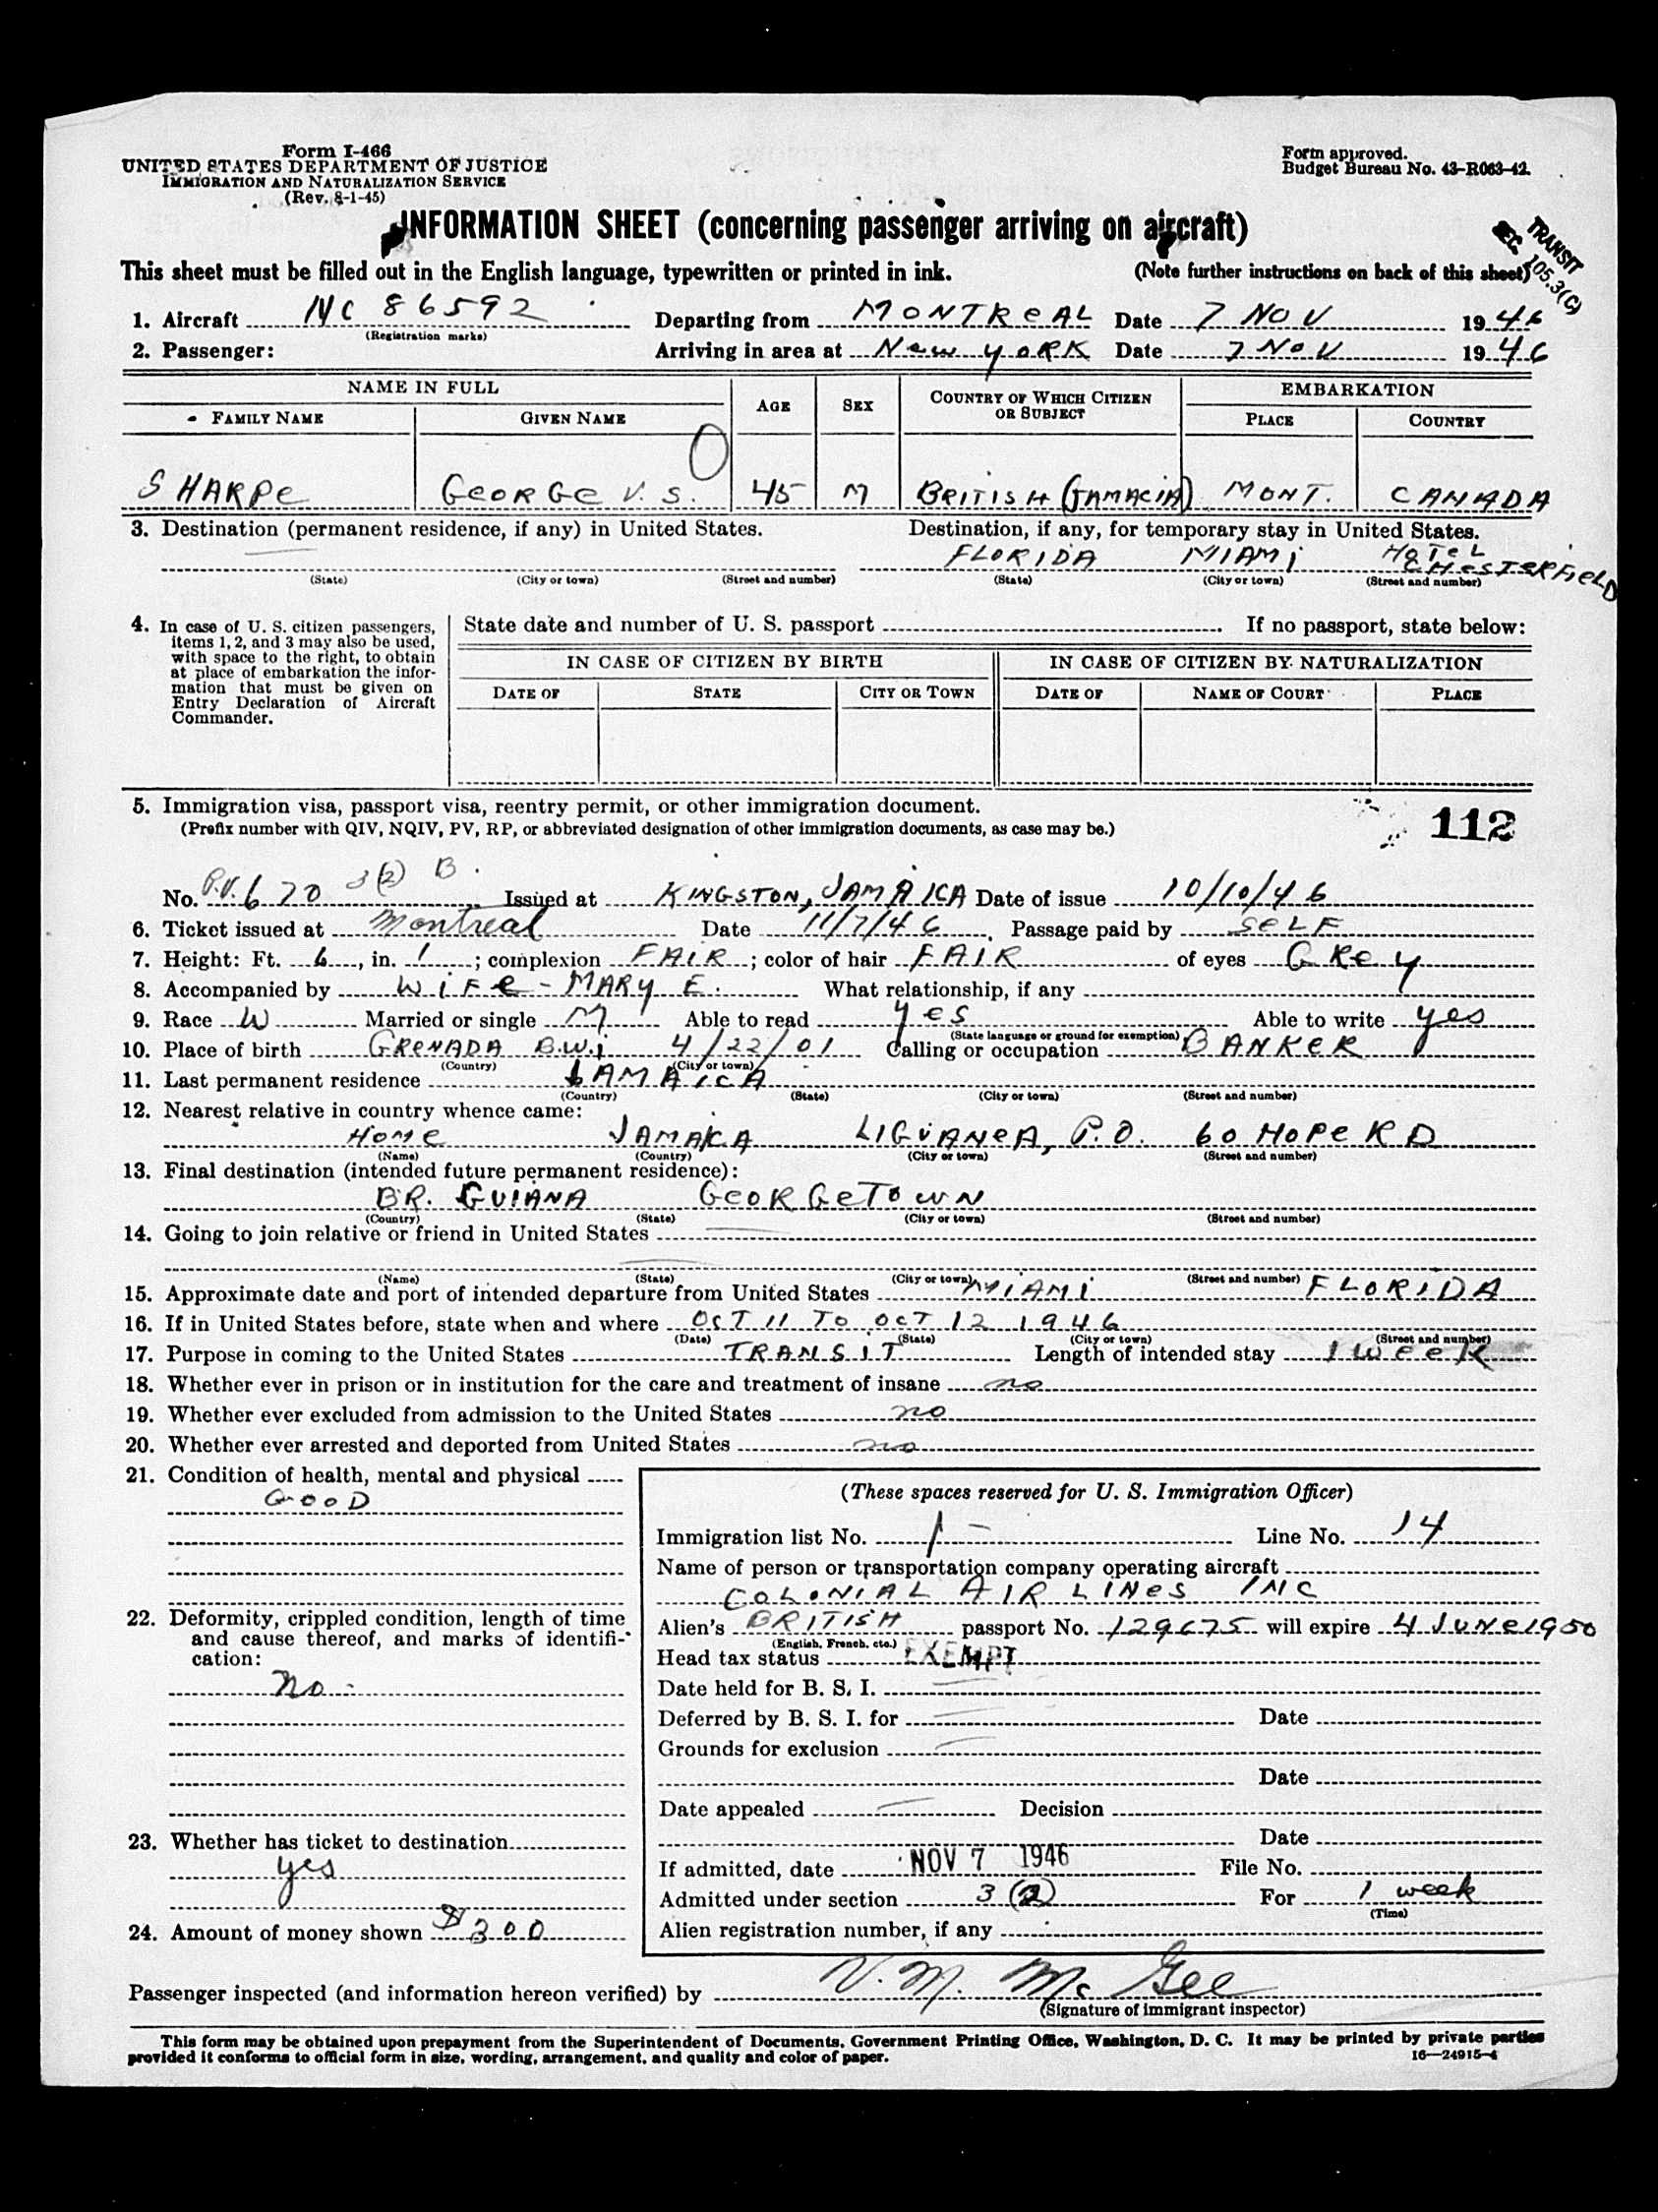 Form I-466
UNITED STATES DEPARTMENT OF JUSTICE
IMMIGRATION AND NATURALIZATION SERVICE
(Rev. 8-1-45)
Form approved.
Budget Bureau No. 43-R063-42.
INFORMATION SHEET (concerning passenger arriving on aircraft)
TRANSIT
SEC 105.3(C)
This sheet must be filled out in the English language, typewritten or printed in ink. (Note further instructions on back of this sheet)
1. Aircraft NC 86592 Departing from MONTREAL Date 7 NOV 1946
(Registration marks)
2. Passenger: Arriving in area at New YORK Date 7 NOV 1946
NAME IN FULL AGE SEX COUNTRY OF WHICH CITIZEN OR SUBJECT EMBARKATION
FAMILY NAME GIVEN NAME PLACE COUNTRY
SHARPE GEORGE V. S. 45 M BRITISH (JAMACIA) MONT. CANADA
3. Destination (permanent residence, if any) in United States. Destination, if any, for temporary stay in United States.
FLORIDA MIAMI HOTEL CHESTERFIELD
(State) (City or town) (Street and number) (State) (City or town) (Street and number)
4. In case of U. S. citizen passengers, items 1, 2, and 3 may also be used, with space to the right, to obtain at place of embarkation the information that must be given on Entry Declaration of Aircraft Commander.
State date and number of U. S. passport If no passport, state below:
IN CASE OF CITIZEN BY BIRTH IN CASE OF CITIZEN BY NATURALIZATION
DATE OF STATE CITY OR TOWN DATE OF NAME OF COURT PLACE
5. Immigration visa, passport visa, reentry permit, or other immigration document.
(Prefix number with QIV, NQIV, PV, RP, or abbreviated designation of other immigration documents, as case may be.)
112
No. P.V. 670 3(2) B. Issued at KINGSTON, JAMAICA Date of issue 10/10/46
6. Ticket issued at Montreal Date 11/7/46. Passage paid by SELF
7. Height: Ft. 6, in. 1; complexion FAIR; color of hair FAIR of eyes GREY
8. Accompanied by WIFE - MARY E. What relationship, if any
9. Race W Married or single M Able to read yes Able to write yes
(State language or ground for exemption)
10. Place of birth GRENADA B.W.I 4/22/01 Calling or occupation BANKER
(Country) (City or town)
11. Last permanent residence JAMAICA
(Country) (State) (City or town) (Street and number)
12. Nearest relative in country whence came:
HOME JAMAICA LIGUANEA, P.O. 60 HOPE RD
(Name) (Country) (City or town) (Street and number)
13. Final destination (intended future permanent residence):
BR. GUIANA GEORGETOWN
(Country) (State) (City or town) (Street and number)
14. Going to join relative or friend in United States
(Name) (State) (City or town) (Street and number)
15. Approximate date and port of intended departure from United States MIAMI FLORIDA
16. If in United States before, state when and where OCT 11 TO OCT 12 1946
(Date) (State) (City or town) (Street and number)
17. Purpose in coming to the United States TRANSIT Length of intended stay 1 WEEK
18. Whether ever in prison or in institution for the care and treatment of insane no
19. Whether ever excluded from admission to the United States no
20. Whether ever arrested and deported from United States no
21. Condition of health, mental and physical
GOOD
22. Deformity, crippled condition, length of time and cause thereof, and marks of identification:
no
23. Whether has ticket to destination
yes
24. Amount of money shown $300
(These spaces reserved for U. S. Immigration Officer)
Immigration list No. 1 Line No. 14
Name of person or transportation company operating aircraft
COLONIAL AIR LINES INC
Alien's BRITISH passport No. 129675 will expire 4 JUNE 1950
(English, French, etc.)
Head tax status EXEMPT
Date held for B. S. I.
Deferred by B. S. I. for Date
Grounds for exclusion
Date
Date appealed Decision
Date
If admitted, date NOV 7 1946 File No.
Admitted under section 3 (2) For 1 week
(Time)
Alien registration number, if any
Passenger inspected (and information hereon verified) by V. M. McGee
(Signature of immigrant inspector)
This form may be obtained upon prepayment from the Superintendent of Documents, Government Printing Office, Washington, D. C. It may be printed by private parties
provided it conforms to official form in size, wording, arrangement, and quality and color of paper.
16—24915-4